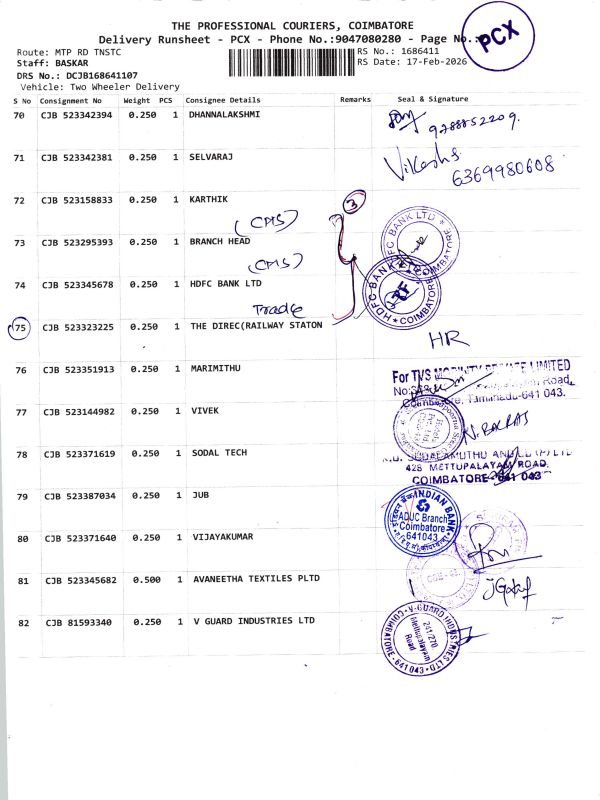 THE PROFESSIONAL COURIERS, COIMBATORE
Delivery Runsheet - PCX - Phone No.:9047080280 - Page No.:
PCX
Route: MTP RD TNSTC
RS No.: 1686411
Staff: BASKAR
RS Date: 17-Feb-2026
DRS No.: DCJB168641107
Vehicle: Two Wheeler Delivery
S No Consignment No Weight PCS Consignee Details Remarks Seal & Signature
70 CJB 523342394 0.250 1 DHANNALAKSHMI
9288852209.
71 CJB 523342381 0.250 1 SELVARAJ
Vikashs
6369980608
72 CJB 523158833 0.250 1 KARTHIK
3
(CMS)
73 CJB 523295393 0.250 1 BRANCH HEAD
HDFC BANK LTD * COIMBATORE
(CMS)
74 CJB 523345678 0.250 1 HDFC BANK LTD
HDFC BANK LTD * COIMBATORE
Trade
75 CJB 523323225 0.250 1 THE DIREC(RAILWAY STATON
HR
76 CJB 523351913 0.250 1 MARIMITHU
For TVS MOBILITY SERVICE LIMITED
Road,
Coimbatore, Tamilnadu-641 043.
77 CJB 523144982 0.250 1 VIVEK
N. BALRAJ
78 CJB 523371619 0.250 1 SODAL TECH
428 METTUPALAYAM ROAD,
COIMBATORE - 641 043
79 CJB 523387034 0.250 1 JUB
INDIAN BANK
ADUC Branch
Coimbatore
641043
80 CJB 523371640 0.250 1 VIJAYAKUMAR
81 CJB 523345682 0.500 1 AVANEETHA TEXTILES PLTD
82 CJB 81593340 0.250 1 V GUARD INDUSTRIES LTD
V-GUARD INDUSTRIES LTD. COIMBATORE-641 043
241/270
Mettupalayam
Road